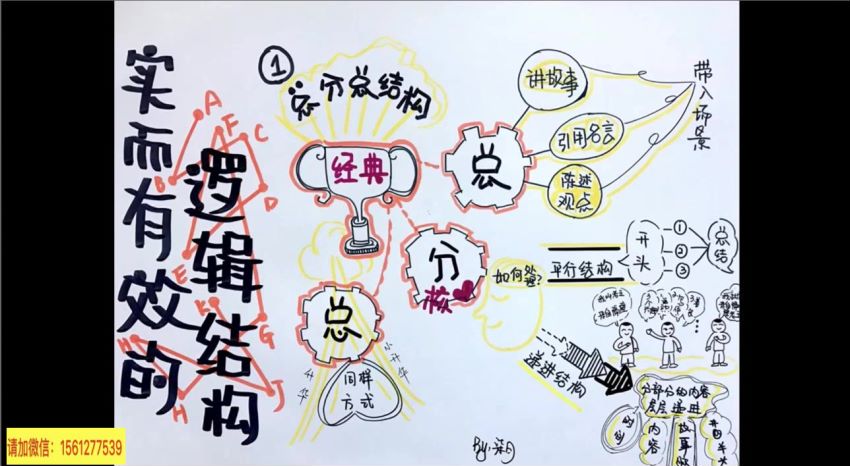 实而有效的
逻辑结构
A
F
C
B
D
E
K
G
H
J
①
总分总结构
经典
总
讲故事
引用名言
陈述
观点
带入场景
分
核
如何处理?
平行结构
开头
①
②
③
总结
递进结构
分部分的内容
层层递进
内容
故事
总
小升华
升华
同样
方式
请加微信：1561277539